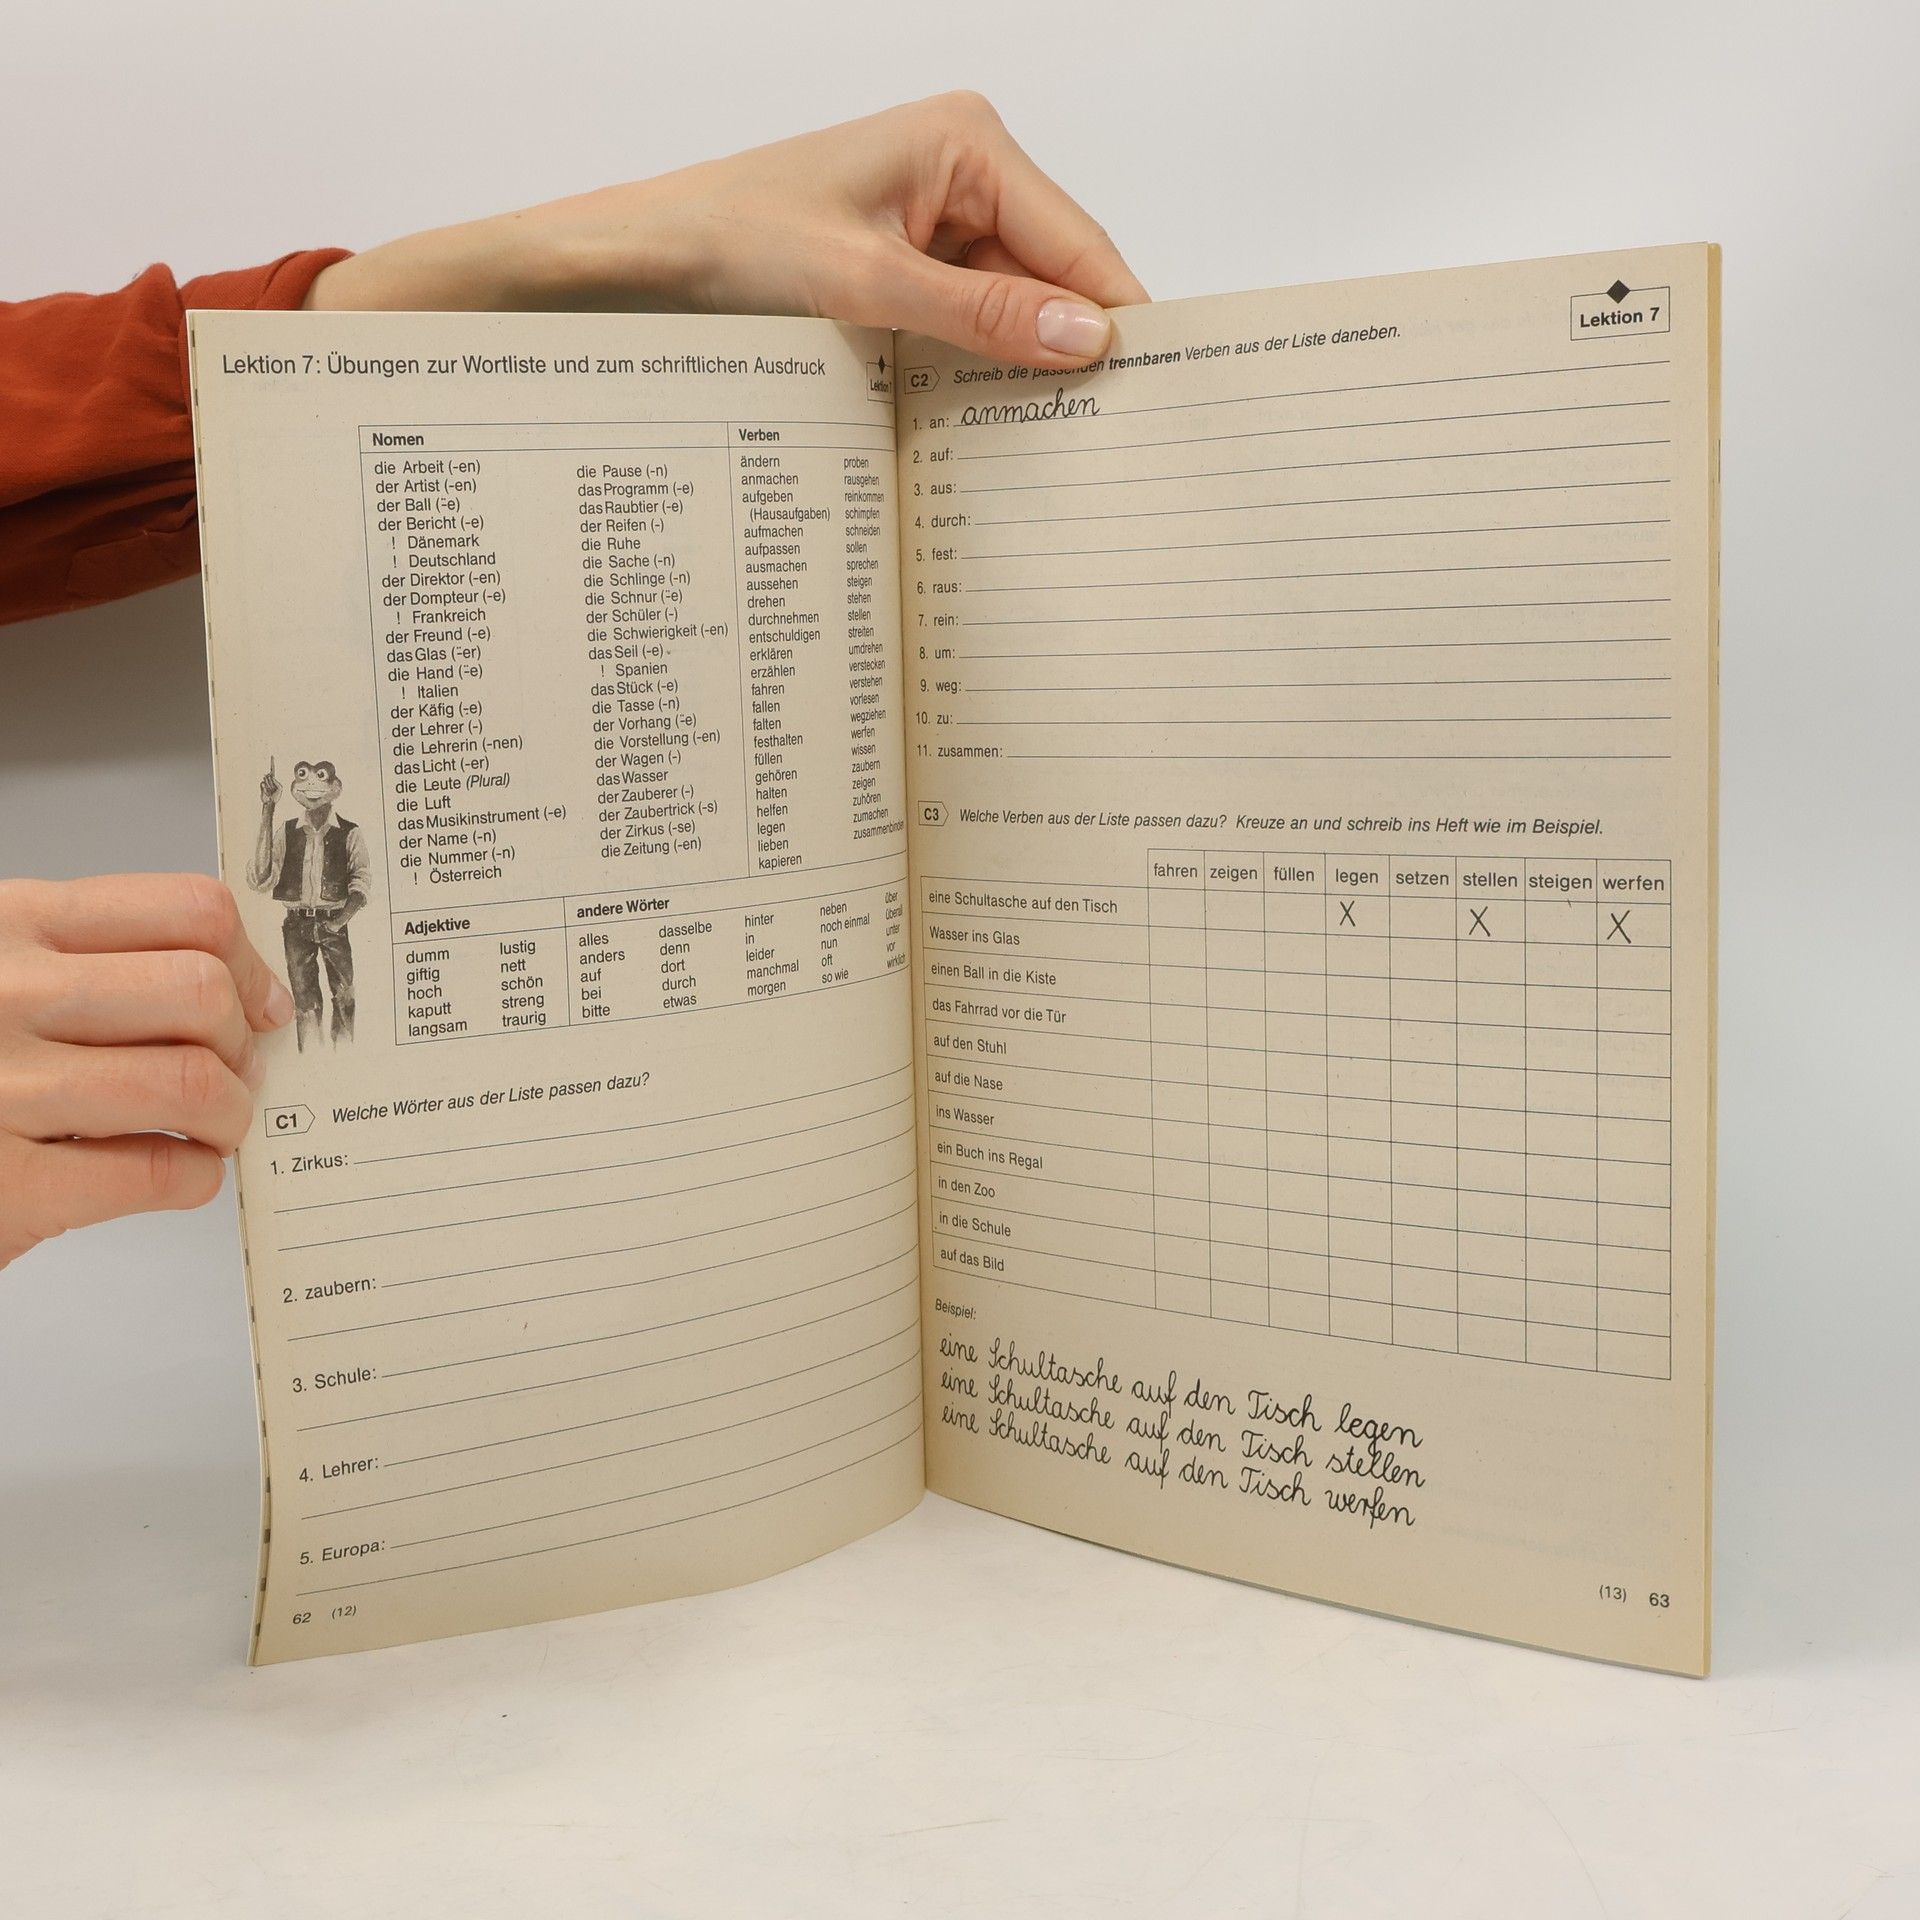 Lektion 7: Übungen zur Wortliste und zum schriftlichen Ausdruck
Lektion 7
Nomen
die Arbeit (-en)
der Artist (-en)
der Ball (¨-e)
der Bericht (-e)
! Dänemark
! Deutschland
der Direktor (-en)
der Dompteur (-e)
! Frankreich
der Freund (-e)
das Glas (¨-er)
die Hand (¨-e)
! Italien
der Käfig (-e)
der Lehrer (-)
die Lehrerin (-nen)
das Licht (-er)
die Leute (Plural)
die Luft
das Musikinstrument (-e)
der Name (-n)
die Nummer (-n)
! Österreich
die Pause (-n)
das Programm (-e)
das Raubtier (-e)
der Reifen (-)
die Ruhe
die Sache (-n)
die Schlinge (-n)
die Schnur (¨-e)
der Schüler (-)
die Schwierigkeit (-en)
das Seil (-e)
! Spanien
das Stück (-e)
die Tasse (-n)
der Vorhang (¨-e)
die Vorstellung (-en)
der Wagen (-)
das Wasser
der Zauberer (-)
der Zaubertrick (-s)
der Zirkus (-se)
die Zeitung (-en)
Verben
ändern
anmachen
aufgeben
(Hausaufgaben)
aufmachen
aufpassen
ausmachen
aussehen
drehen
durchnehmen
entschuldigen
erklären
erzählen
fahren
fallen
falten
festhalten
füllen
gehören
halten
helfen
legen
lieben
kapieren
proben
rausgehen
reinkommen
schimpfen
schneiden
sollen
sprechen
steigen
stehen
stellen
streiten
umdrehen
verstecken
verstehen
vorlesen
wegziehen
werfen
wissen
zaubern
zeigen
zuhören
zumachen
zusammenbinden
Adjektive
dumm
giftig
hoch
kaputt
langsam
lustig
nett
schön
streng
traurig
andere Wörter
alles
anders
auf
bei
bitte
dasselbe
denn
dort
durch
etwas
hinter
in
leider
manchmal
morgen
neben
noch einmal
nun
oft
so wie
über
überall
unter
vor
wirklich
C1 Welche Wörter aus der Liste passen dazu?
1. Zirkus:
2. zaubern:
3. Schule:
4. Lehrer:
5. Europa:
62 (12)
Lektion 7
C2 Schreib die passenden trennbaren Verben aus der Liste daneben.
1. an: anmachen
2. auf:
3. aus:
4. durch:
5. fest:
6. raus:
7. rein:
8. um:
9. weg:
10. zu:
11. zusammen:
C3 Welche Verben aus der Liste passen dazu? Kreuze an und schreib ins Heft wie im Beispiel.
fahren zeigen füllen legen setzen stellen steigen werfen
eine Schultasche auf den Tisch X X X
Wasser ins Glas
einen Ball in die Kiste
das Fahrrad vor die Tür
auf den Stuhl
auf die Nase
ins Wasser
ein Buch ins Regal
in den Zoo
in die Schule
auf das Bild
Beispiel:
eine Schultasche auf den Tisch legen
eine Schultasche auf den Tisch stellen
eine Schultasche auf den Tisch werfen
(13) 63